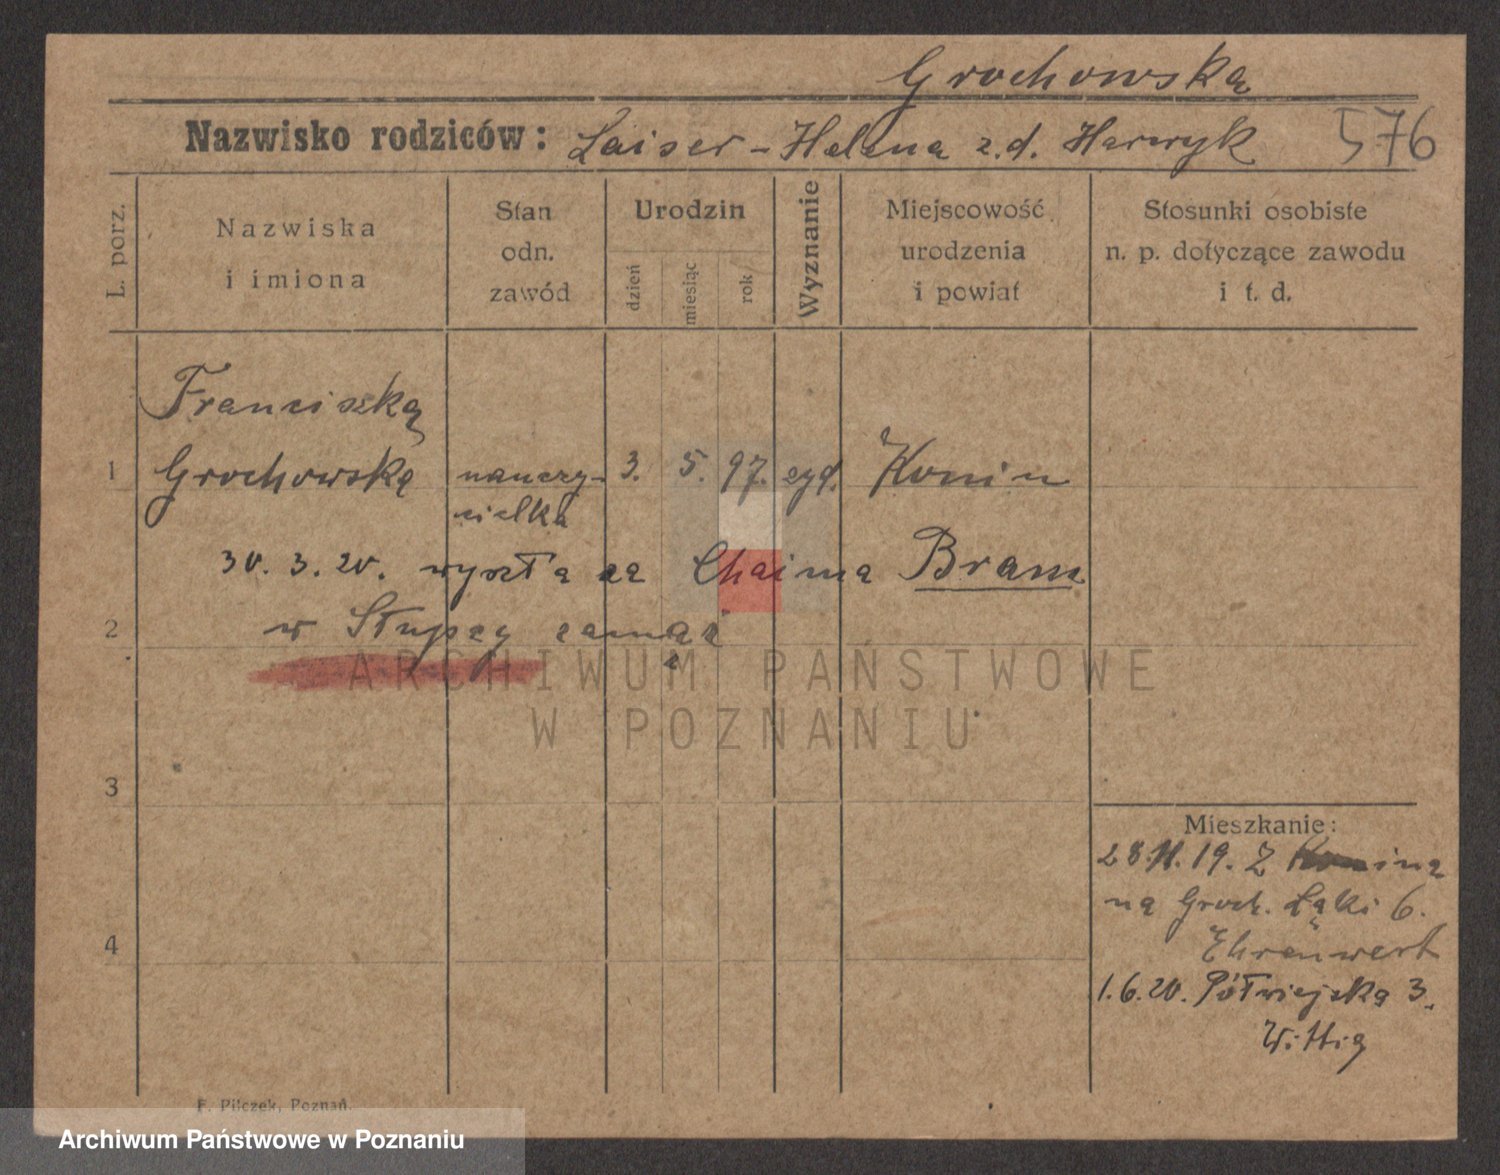 Grochowska
Nazwisko rodziców: Laiser - Helena z.d. Harwyk 576
L. porz.
Nazwiska
i imiona
Stan
odn.
zawód
Urodzin
dzień
miesiąc
rok
Wyznanie
Miejscowość
urodzenia
i powiat
Stosunki osobiste
n. p. dotyczące zawodu
i t. d.
Franciszka
1 Grochowska nauczy- 3. 5. 97. żyd. Konin
cielka
30. 3. 20. wyszła za Chaima Bram
2 w Słupcy zamąż
ARCHIWUM PAŃSTWOWE
W POZNANIU
3
4
Mieszkanie:
28.11.19. Z Konina
na Groch. Łąki 6.
Ehrenwert
1.6.20. Półwiejska 3.
Wittig
F. Pilczek, Poznań.
Archiwum Państwowe w Poznaniu